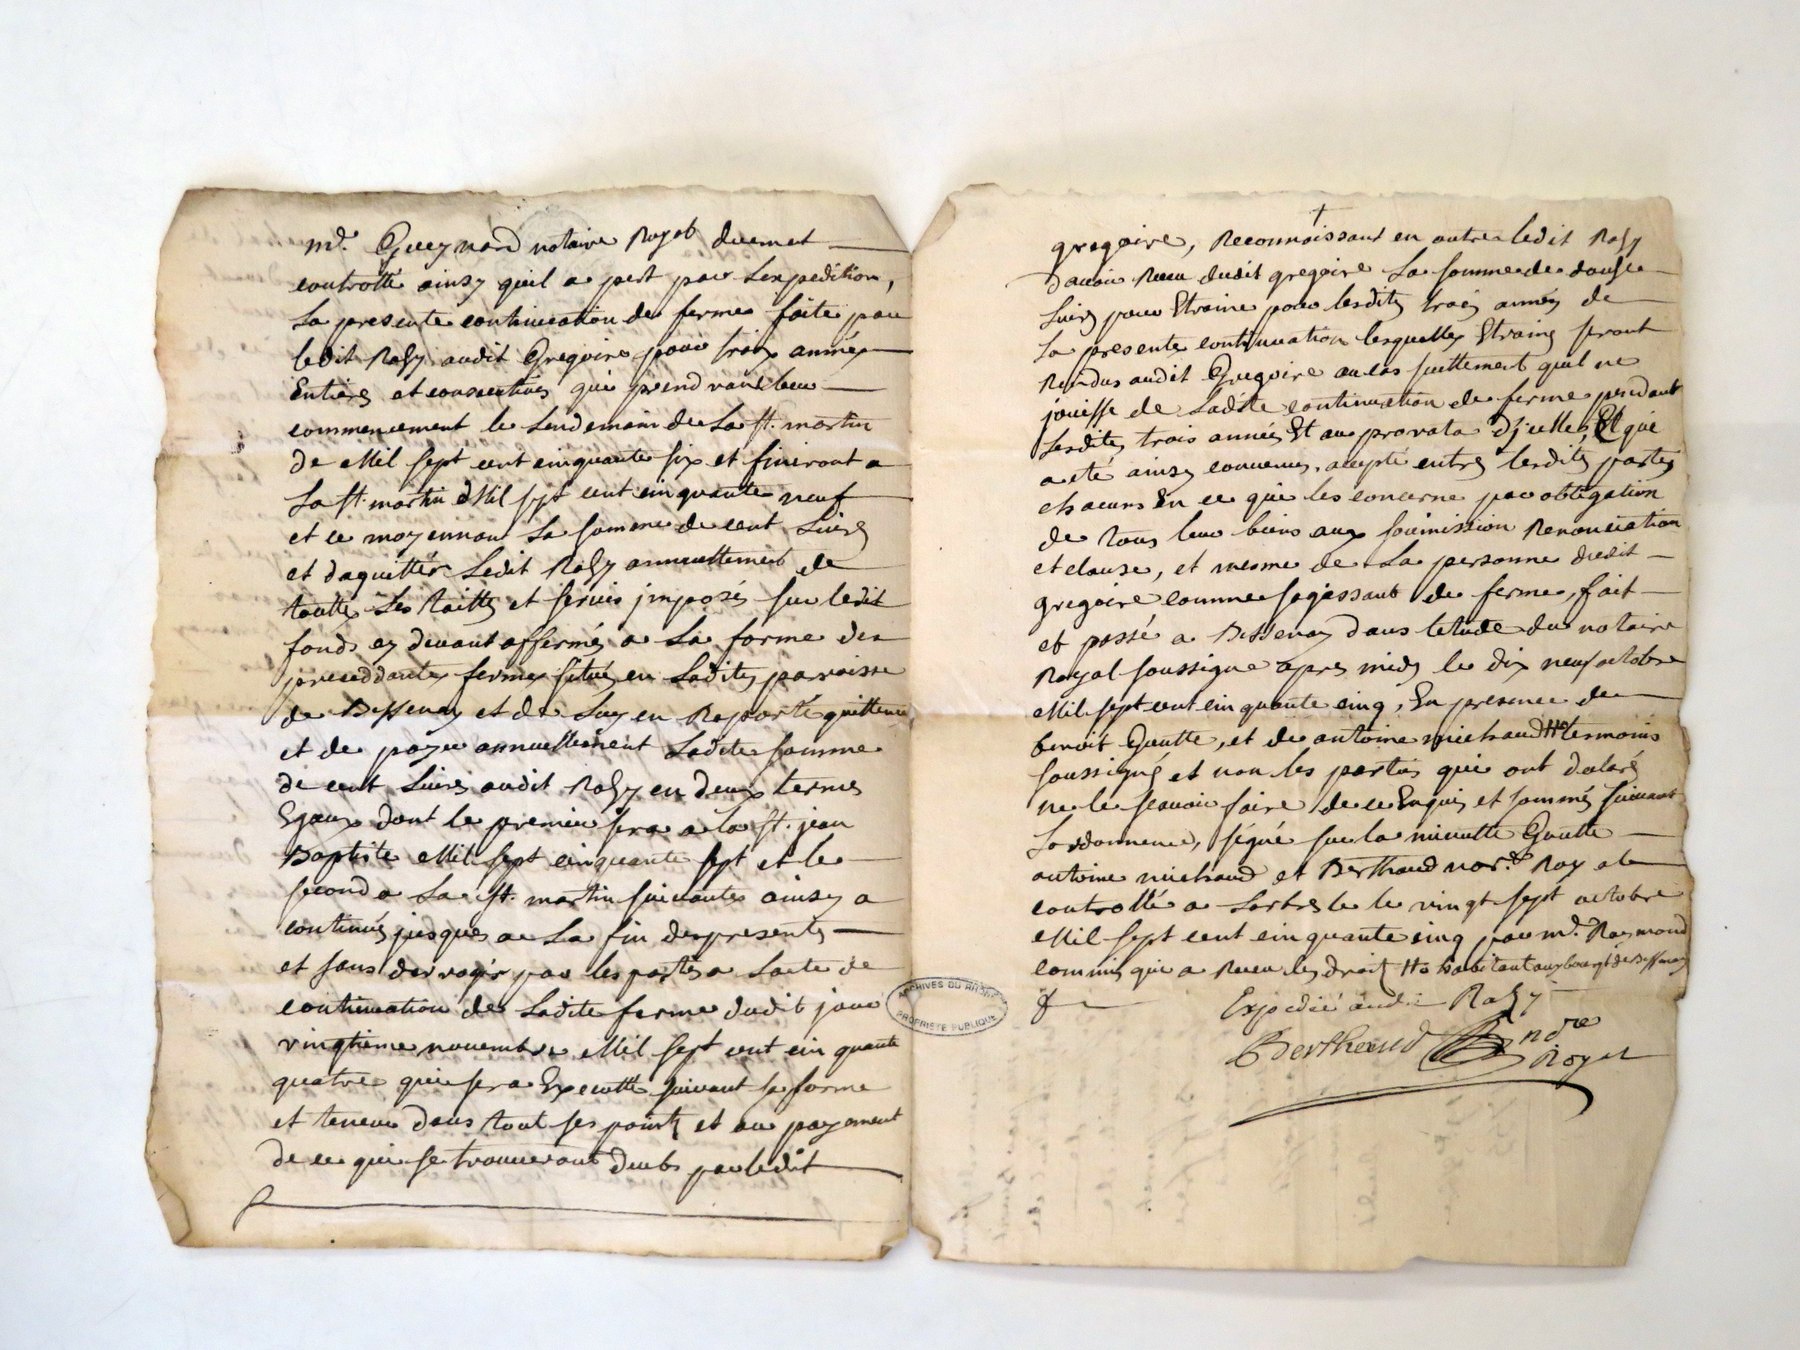 md. Gueynard notaire Royal duemet
controllé ainsy quil a pert par Lexpedition,
La presente continuation de ferme faite par
ledit Rasy audit Gregoire pour trois années
Entieres et consecutives qui prendront leur
commencement le Lendemain de La St. martin
de Mil sept cent cinquante six et finiront a
La St. martin Mil sept cent cinquante neuf
et ce moyennant La somme de cent Livres
et daquitter Ledit Rasy annuellement de
toutte Les tailles et servis jmposés sur ledit
fonds cy devant affermés a La forme des
preceddante ferme situé en Ladite paroisse
de Bessenay et de Luy en Raporté quittance
et de payer annuellement Ladite somme
de cent Livres audit Rasy en deux termes
Egaux dont le premier sera a la St. jean
Baptiste Mil sept cinquante sept et le
second a La St. martin suivante ainsy a
continué jusques a La fin des presentes
et sans derroger par les parties a Lacte de
continuation de Ladite ferme dudit jour
vingtieme novembre Mil sept cent cinquante
quatre qui sera Executté suivant sa forme
et teneur dans tout ses points et au payement
de ce qui se trouveront deubs par ledit
gregoire, Reconnoissant en outre ledit Rasy
davoir Receu dudit gregoire La somme de douse
Livres pour Etraine pour lesdites trois années de
La presente continuation lesquelles Etraine seront
Rendus audit Gregoire au cas seullement quil ne
jouisse de Ladite continuation de ferme pendant
Lesdites trois années Et au prorata djcelles, Et qui
a eté ainsy convenus, accepté entre lesdites parties
chacuns En ce qui les concerne par obligation
de tous leur biens aux soumission Renonciation
et clause, et mesme de La personne dudit
gregoire comme sagissant de ferme, fait
et passé a Bessenay dans letude du notaire
Royal soussigne apres midy le dix neuf octobre
Mil sept cent cinquante cinq, En presence de
benoit Goutte, et de antoine michaud # temoins
soussignés et non les parties qui ont declaré
ne le scavoir faire de ce Enquis et sommés suivant
Lordonnance, signé sur la minutte Goutte
antoine michaud et Berthaud nore. Royal
controllé a Larbresle le vingt sept octobre
Mil sept cent cinquante cinq par md. Raymond
commis qui a Receu les droit # habitant aux bourg de Bessenay
Expedié audit Rasy
Berthaud nore
Royal
ARCHIVES DU RHÔNE
PROPRIÉTÉ PUBLIQUE